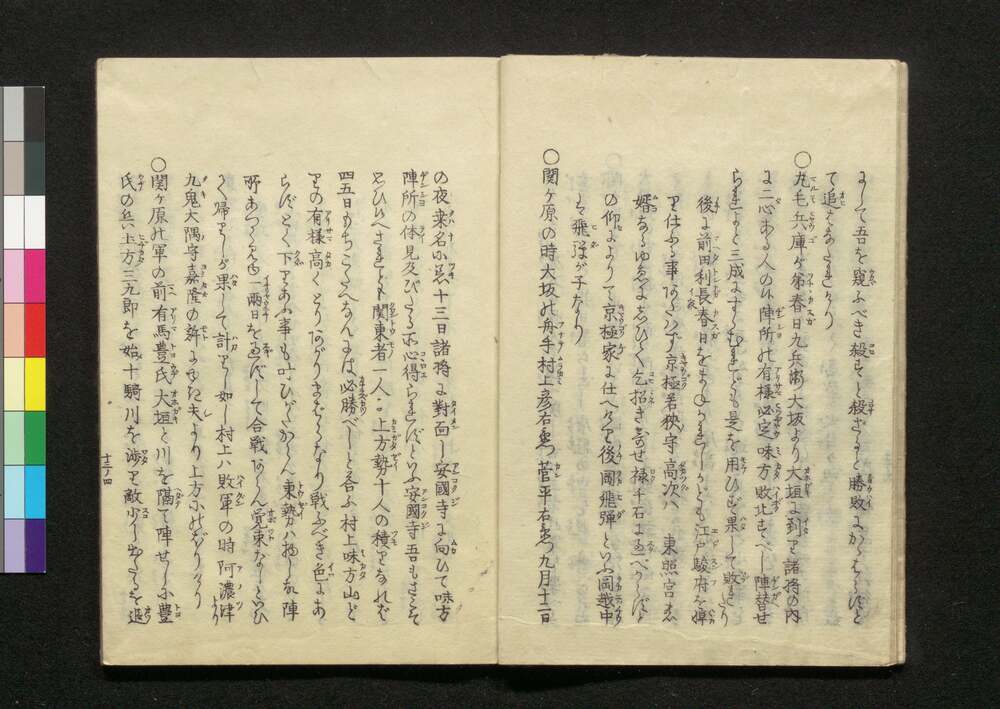 よして吾を窺ふべき殺すと殺さるゝと勝敗にかゝはらずと
て追はなたれけり
〇九毛兵庫が弟春日九兵衛大坂より大垣に到り諸将の内
に二心ある人の外陣所の有様必定味方敗北すべし陣替せ
られよと三成にすゝむれども是を用ひず果して敗れたり
後に前田利長春日をまねかれけれども江戸駿府を憚
り仕ふる事ならず京極若狭守高次ハ 東照宮の
婿なるゆゑよろしく乞招き寄せ禄千石
の仰によりて京極家に仕へけり後岡飛弾といふ岡越中
は飛弾が子なり
〇関ヶ原の時大坂の舟手村上彦右衛門菅平右衛門九月十二日
の夜桑名に着十三日諸将に対面し安國寺に向ひて味方
陣所の体見及びたる所心得られずといふ安國寺吾もさこそ
とひへされども関東者一人に上方勢十人の積りなれば
四五日もちこたへなんには必勝べしと答ふ村上味方山ど
りの有様高くとりあがりまばらなり戦ふべき色にあ
らずとく下りあふ事も叶ひがたからん東勢ハ物しお陣
所あつく見ゆ一両日を過ずして合戦あらん覚束なしといひ
て帰りしが果して計りし如し村上ハ敗軍の時阿濃津より
九鬼大隅守嘉隆の許にゆき夫より上方にのぼりけり
〇関ヶ原の軍の前有馬豊氏大垣と川を隔て陣せしに豊
氏の兵上方三九郎を始十騎川を渉り敵少し出たるを追
十三ノ四